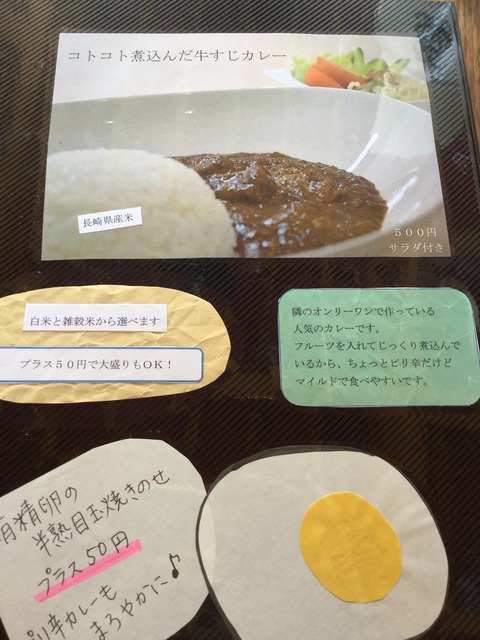 コトコト煮込んだ牛すじカレー
長崎県産米
５００円
サラダ付き
白米と雑穀米から選べます
プラス５０円で大盛りもOK！
隣のオンリーワンで作っている
人気のカレーです。
フルーツを入れてじっくり煮込んで
いるから、ちょっとピリ辛だけど
マイルドで食べやすいです。
有精卵の
半熟目玉焼きのせ
プラス50円
ピリ辛カレーも
まろやかに♪